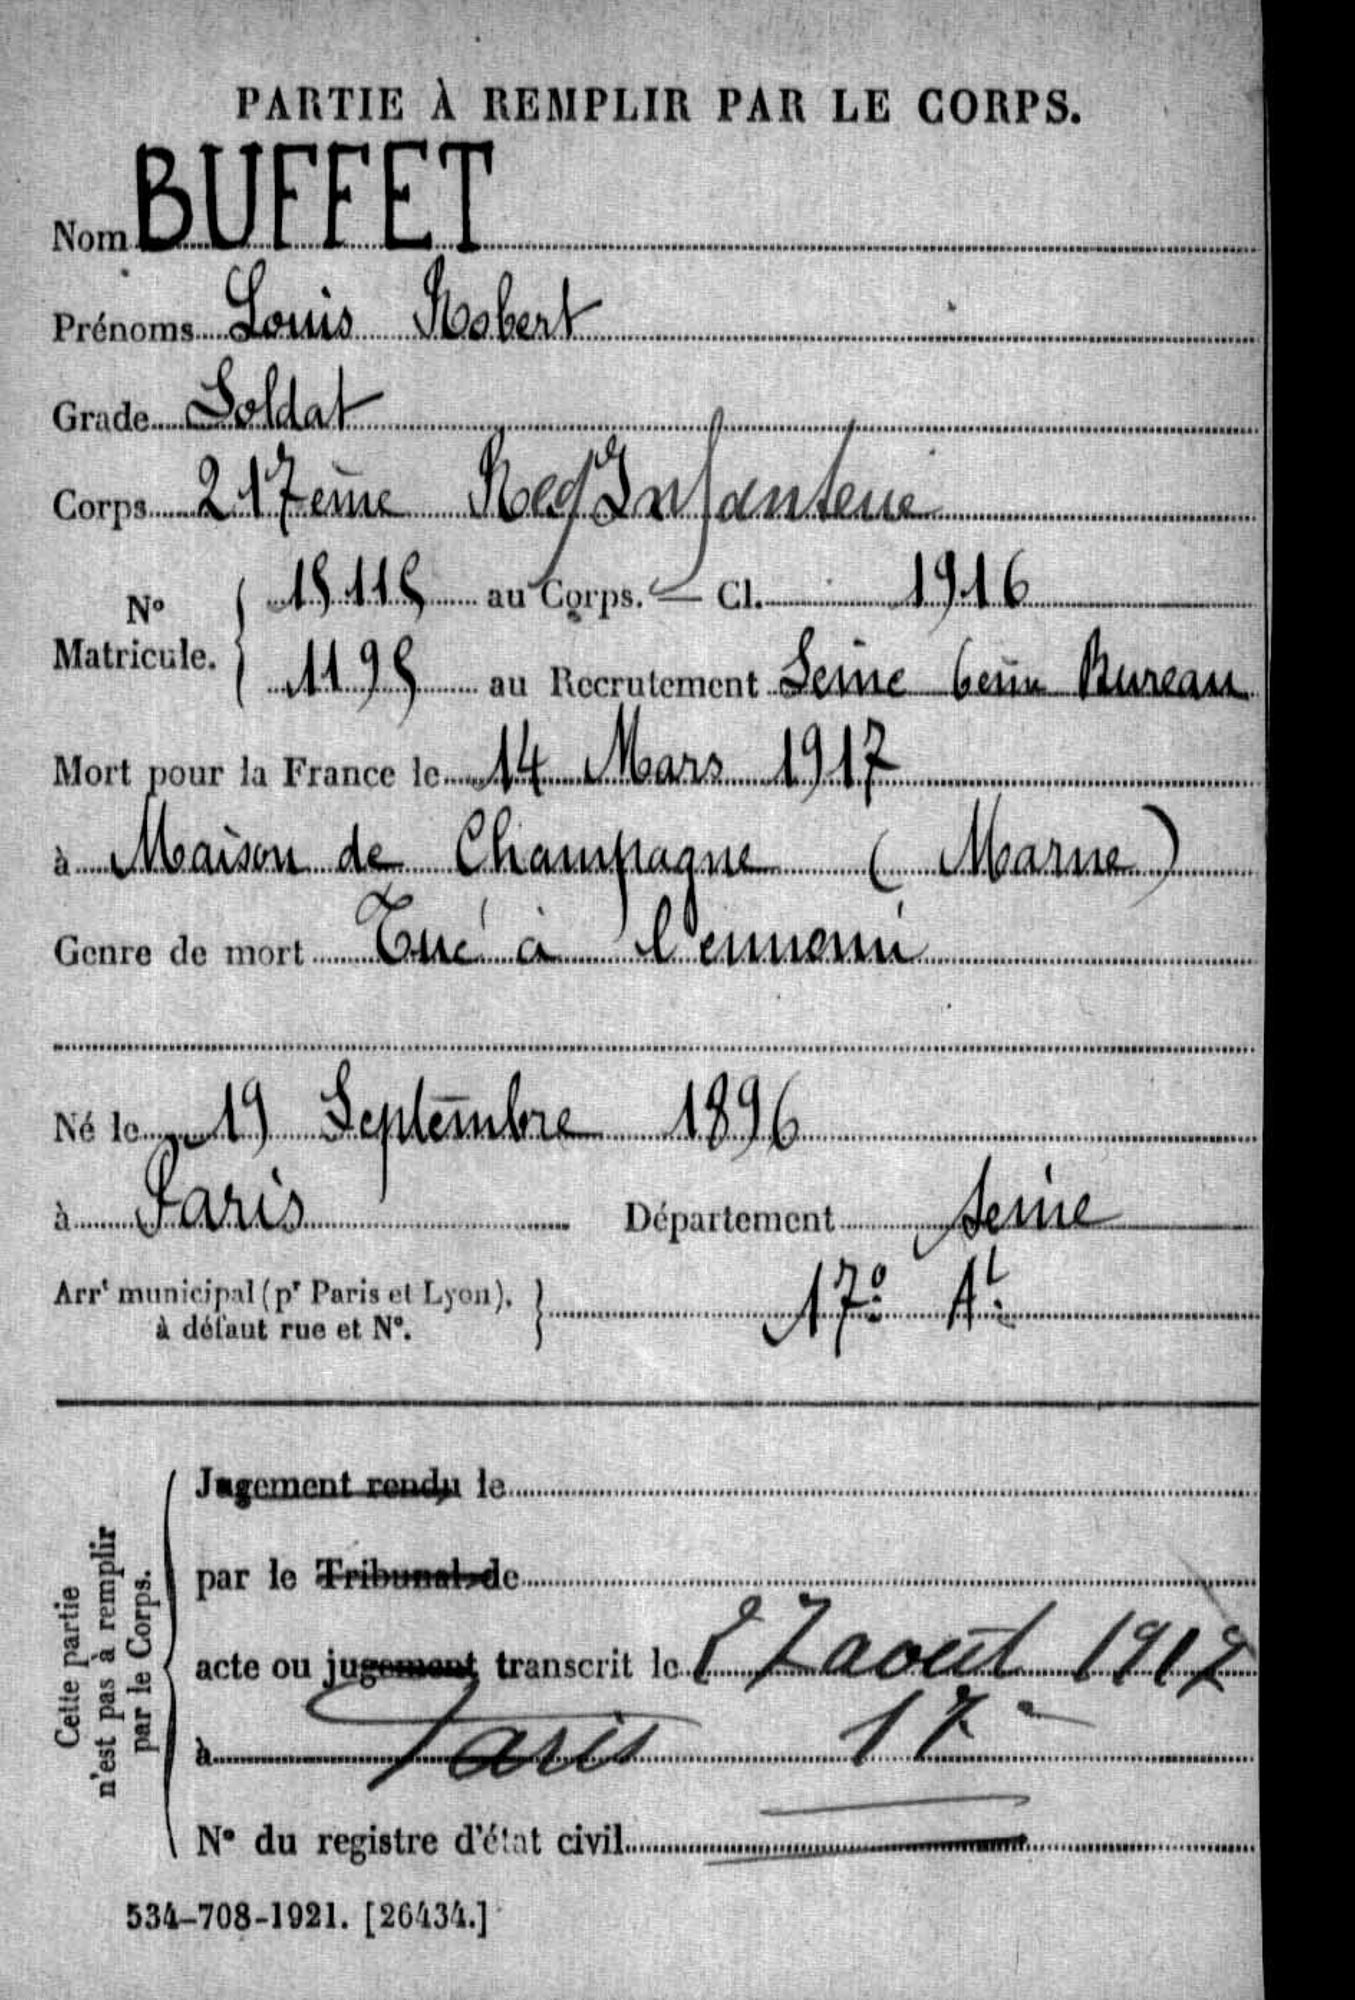 PARTIE À REMPLIR PAR LE CORPS.
Nom BUFFET
Prénoms Louis Robert
Grade Soldat
Corps 217ème Reg Infanterie
N° Matricule. 15115 au Corps. — Cl. 1916
1195 au Recrutement Seine 6ème Bureau
Mort pour la France le 14 Mars 1917
à Maison de Champagne (Marne)
Genre de mort Tué à l'ennemi
Né le 19 Septembre 1896
à Paris Département Seine
Arr<sup>t</sup> municipal (p<sup>r</sup> Paris et Lyon), à défaut rue et N°. 17° A<sup>t</sup>
Cette partie n'est pas à remplir par le Corps.
Jugement rendu le
par le Tribunal de
acte ou jugement transcrit le 27 août 1917
à Paris 17
N° du registre d'état civil
534-708-1921. [26434.]